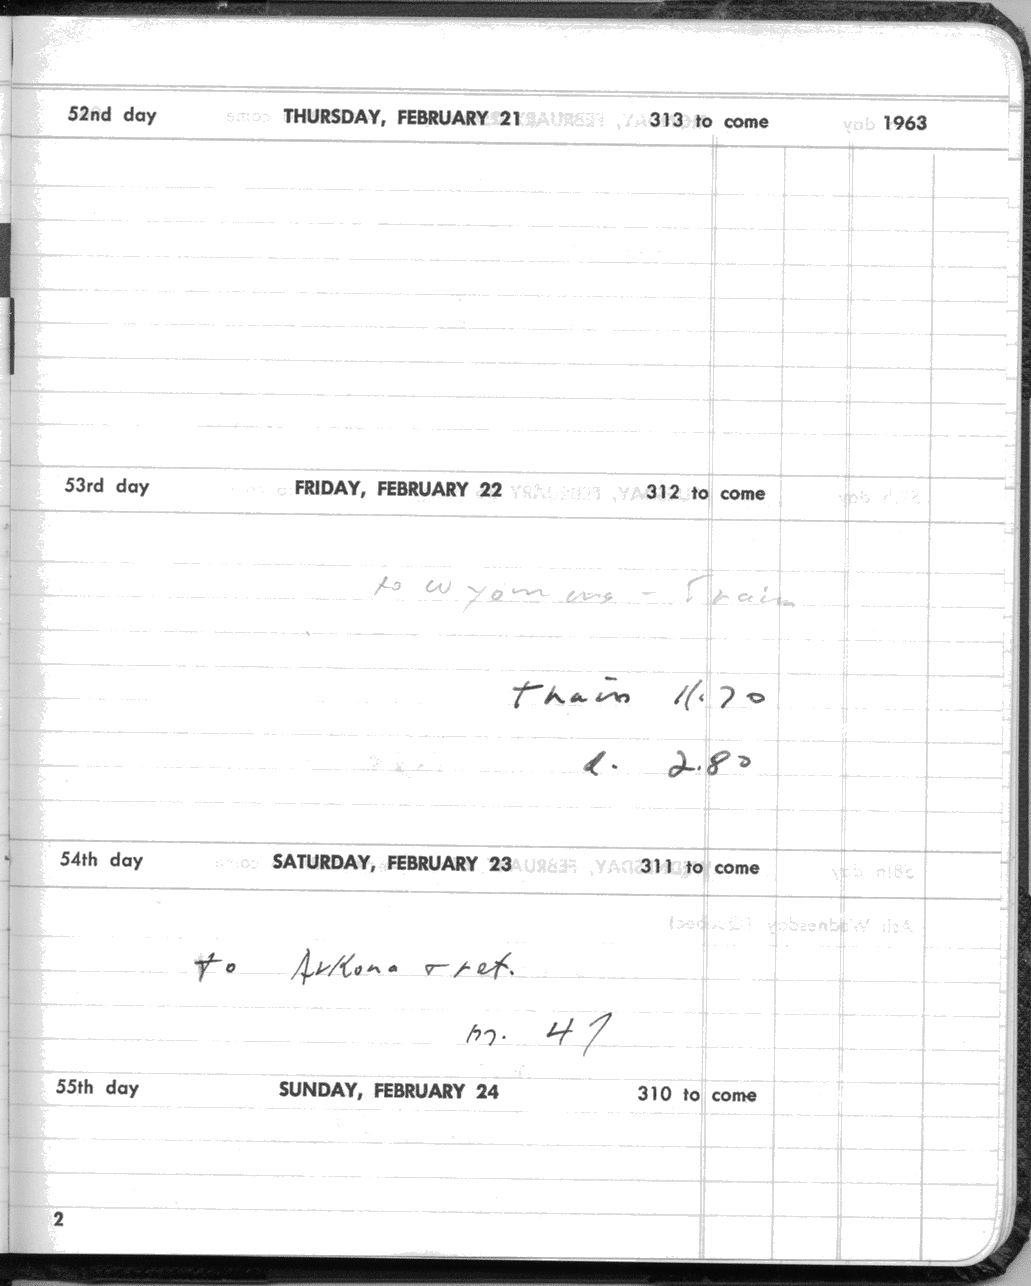 52nd day THURSDAY, FEBRUARY 21 313 to come 1963
53rd day FRIDAY, FEBRUARY 22 312 to come
to Wyoming - Train
train 11.70
d. 2.80
54th day SATURDAY, FEBRUARY 23 311 to come
to Arkona + ret.
m. 47
55th day SUNDAY, FEBRUARY 24 310 to come
2